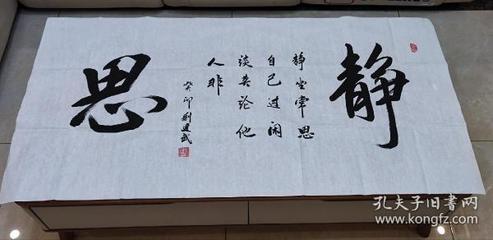 静
静坐常思
自己过闲
谈莫论他
人非
癸卯刘建武
思
孔夫子旧书网